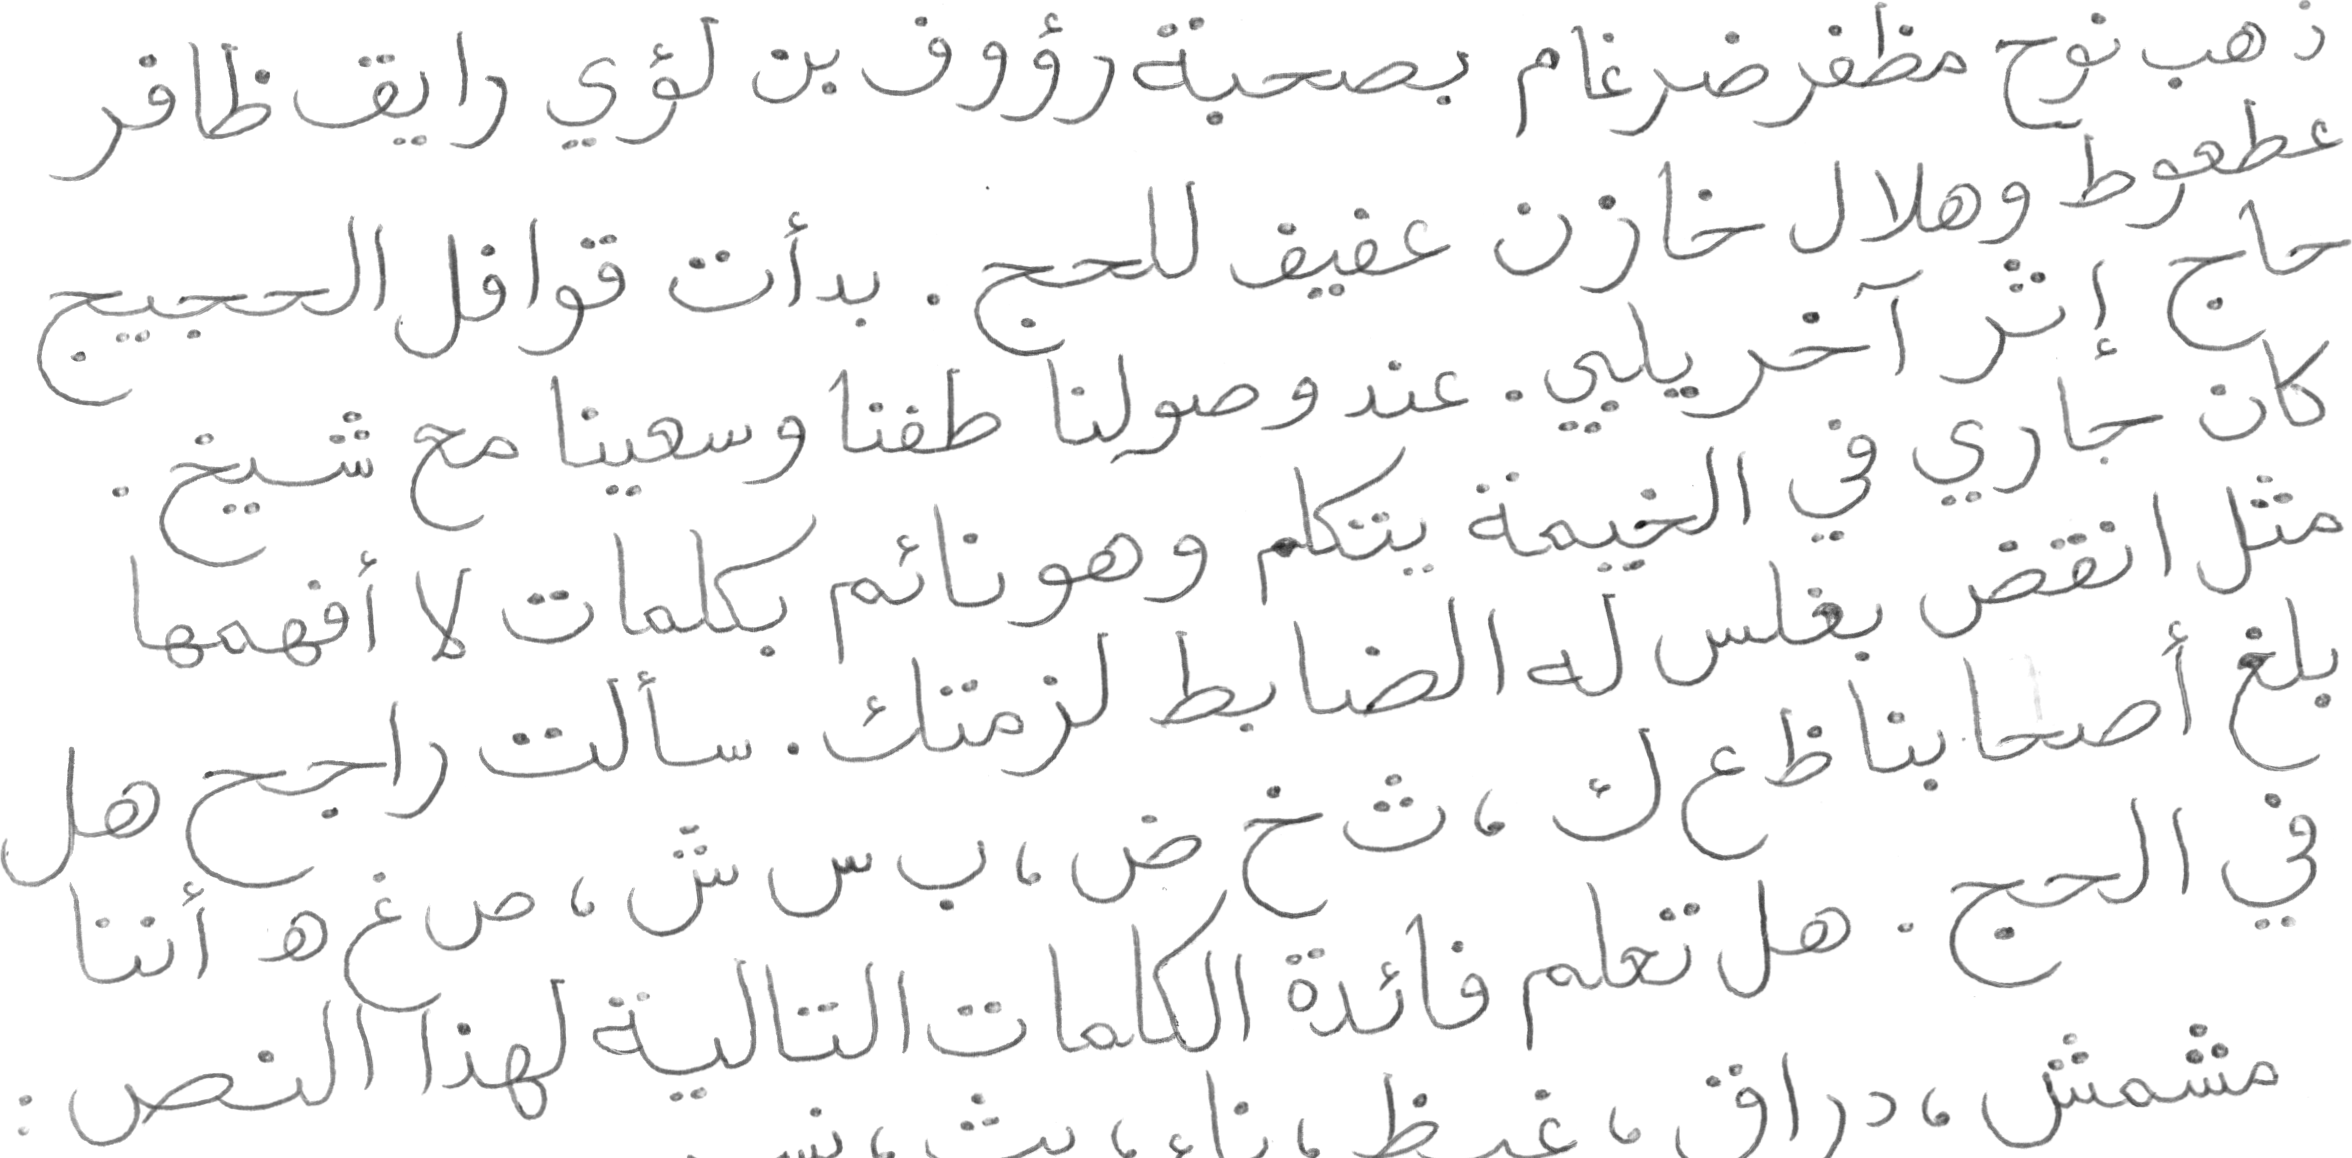 ذهب نوح مظفر ضرغام بصحبة رؤوف بن لؤي رايق ظافر
عطعوط وهلال خازن عفيف للحج . بدأت قوافل الحجيج
حاج إثر آخر يلبي . عند وصولنا طفنا وسعينا مع شيخ .
كان جاري في الخيمة يتكلم وهو نائم بكلمات لا أفهمها
مثل انقض بغلس له الضابط لزمتك . سألت راجح هل
بلغ أصحابنا ظ ع ك ، ث خ ض ، ب س ش ، ص غ هـ أننا
في الحج . هل تعلم فائدة الكلمات التالية لهذا النص :
مشمش ، دراق ، غيظ ، ناء ،